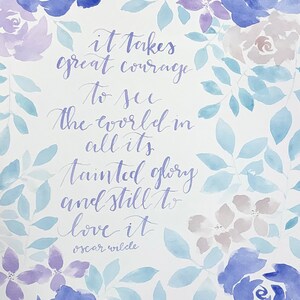 it takes
great courage
to see
the world in
all its
tainted glory
and still to
love it
oscar wilde